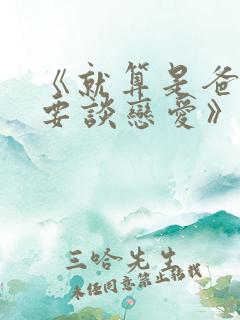 《就算是爸
要談戀愛》
三哈先生
未經同意禁止轉載